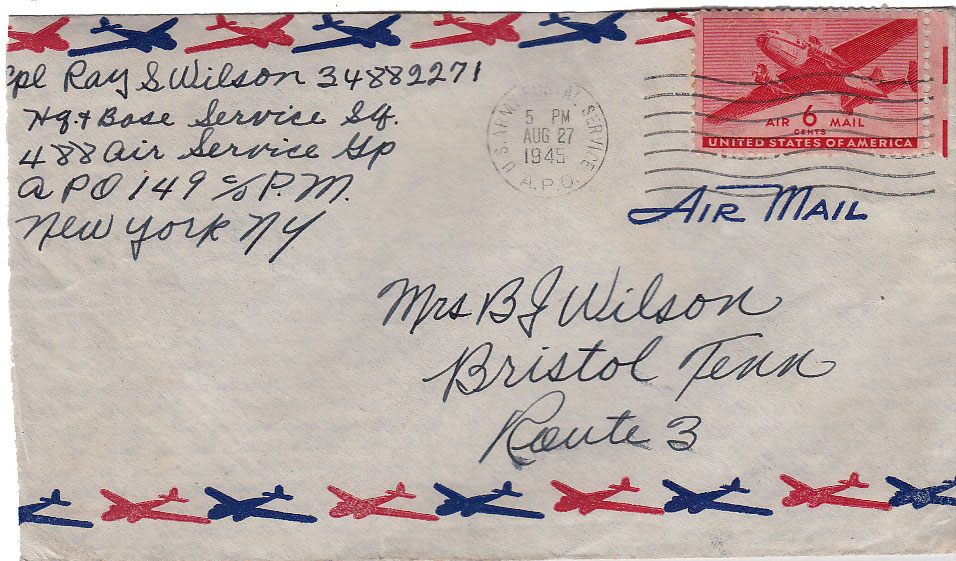 Cpl Ray S Wilson 34882271
Hq + Base Service Sq.
488 Air Service Gp
APO 149 c/o P.M.
New York NY
U.S. ARMY POSTAL SERVICE
5 PM
AUG 27
1945
A.P.O.
AIR 6 MAIL
CENTS
UNITED STATES OF AMERICA
AIR MAIL
Mrs B J Wilson
Bristol Tenn
Route 3